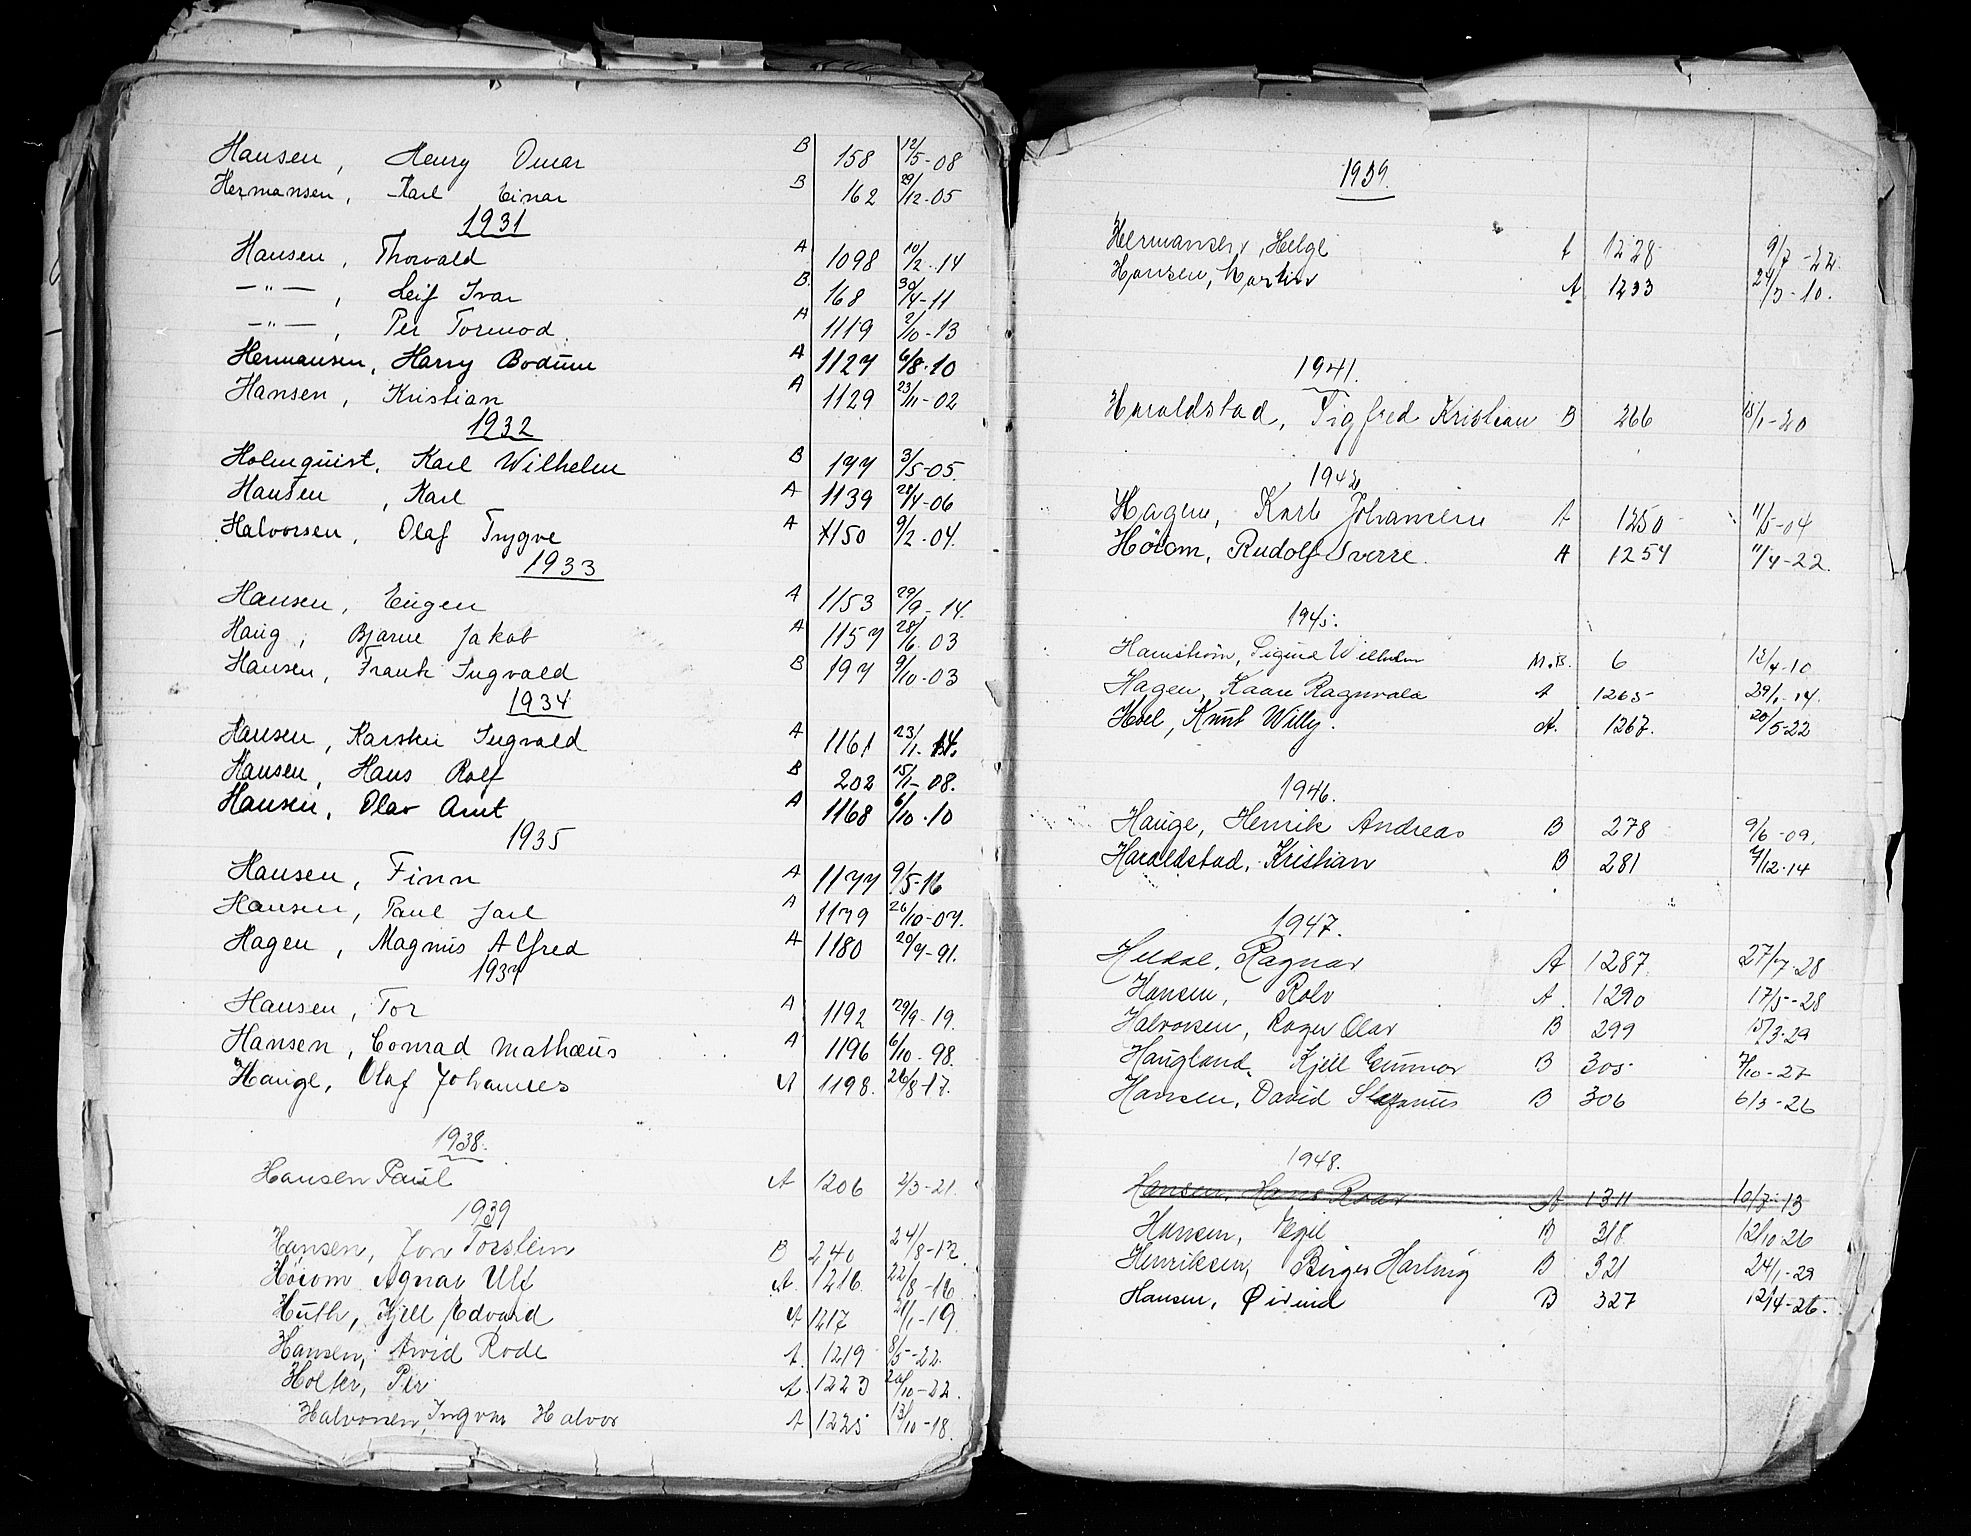 Hansen, Henry Omar B 158 12/5-08
Hermansen, Karl Einar B 162 29/12-05
1931
Hansen, Thorvald A 1098 10/2-14
-"-, Leif Ivar B 168 30/4-11
-"-, Per Tormod A 1119 2/10-13
Hermansen, Harry Bodum A 1127 6/8-10
Hansen, Kristian A 1129 23/11-02
1932
Holmquist, Karl Wilhelm B 177 3/5-05.
Hansen, Karl A 1139 28/4-06
Halvorsen, Olaf Trygve A 1150 9/2-04.
1933
Hansen, Eugen A 1153 29/9-14.
Haug, Bjarne Jakob A 1157 28/6-03
Hansen, Frank Ingvald B 197 9/10-03
1934
Hansen, Karsten Ingvald A 1161 23/11-14.
Hansen, Hans Rolf B 202 15/1-08.
Hansen, Olav Arnt A 1168 6/10-10
1935
Hansen, Finn A 1177 9/5-16
Hansen, Paul Jarl A 1179 26/10-07.
Hagen, Magnus Alfred A 1180 20/9-91.
1937
Hansen, Tor A 1192 29/9-19.
Hansen, Conrad Mathæus A 1196 6/10-98.
Hauge, Olaf Johannes A 1198. 26/8-17.
1938.
Hansen Paul A 1206 2/3-21.
1939
Hansen, Jon Torstein B 240 24/8-12
Höiom Agnar Ulf A. 1216 22/8-16
Huth, Kjell Edvard A 1217 21/1-19
Hansen, Arvid Rode A. 1219 8/5-22.
Holter, Per A. 1223 20/10-22.
Halvorsen, Ingvar Halvor A 1225 13/10-18.
1939.
Hermansen, Helge A 1228 9/7-22.
Hansen, Martin A 1233 24/3-10.
1941.
Haraldstad, Sigfred Kristian B 266 15/1-20
1942
Hagen, Karl Johansen A 1250 11/5-04
Höiom, Rudolf Sverre. A 1254 11/4-22.
1945.
Hamstrøm, Sigurd Wilhelm M.B. 6 12/4-10
Hagen, Kaare Ragnvald A 1265 29/1-14.
Hoel, Knut Willy. A. 1267. 20/5-22
1946.
Hauge, Henrik Andreas B 278 9/6-09.
Haraldstad, Kristian B 281 7/12-14
1947.
Ragnar A 1287 27/7-28
Hansen, Rolv A. 1290 17/5-28
Halvorsen, Roger Olav B 299 15/3-29
Haugland, Kjell Gunnar B 305 7/10-27
Hansen, David Stefanus B 306 6/3-26
1948.
Hansen, Hans Roar A 1311 10/3-13
Hansen, Egil B 318 12/10-26
Henriksen, Birger Harling B 321 24/1-29
Hansen, Øivind B 327 12/4-26.